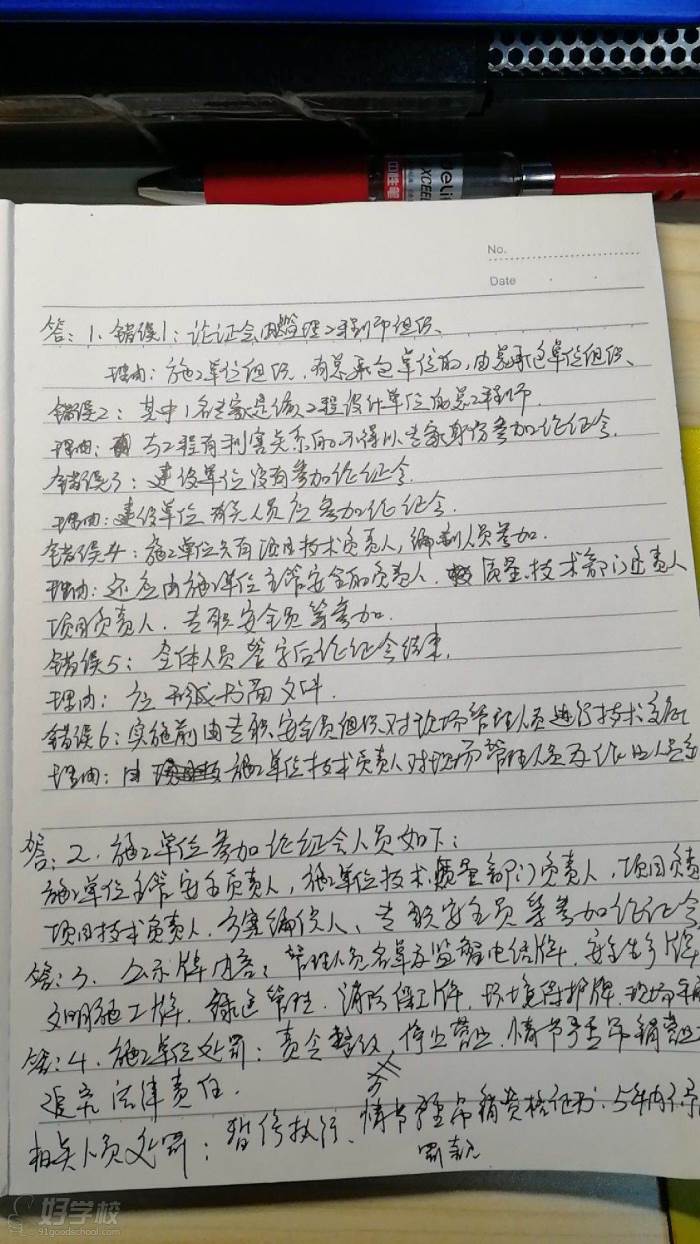 No.
Date
答：1、错误1：论证会由监理工程师组织、
理由：施工单位组织，有总承包单位的，由总承包单位组织、
错误2：其中1名专家是该工程设计单位的总工程师.
理由：与工程有利害关系的不得以专家身份参加论证会.
错误3：建设单位没有参加论证会.
理由：建设单位有关人员应参加论证会.
错误4：施工单位只有项目技术负责人，编制人员参加.
理由：还应由施工单位主管安全的负责人. 质量、技术部门负责人
项目负责人、专职安全员等参加.
错误5：全体人员签字后论证会结束.
理由：应形成书面文件.
错误6：实施前由专职安全员组织对现场管理人员进行技术交底
理由：由 施工单位技术负责人对现场管理人员及作业人员
答：2、施工单位参加论证会人员如下：
施工单位主管安全负责人，施工单位技术、质量部门负责人，项目负责
项目技术负责人、方案编制人、专职安全员等参加论证会
答：3、公示牌内容：管理人员名单及监督电话牌、安全生产牌
文明施工牌、 管理、消防保卫牌、环境保护牌、现场
答：4、施工单位处罚：责令整改、停业营业、情节严重吊销营业
追究法律责任.
相关人员处罚：暂停执行、情节严重吊销资格证书、5年内不予
罚款
deli
XCEED
好学校
91goodschool.com